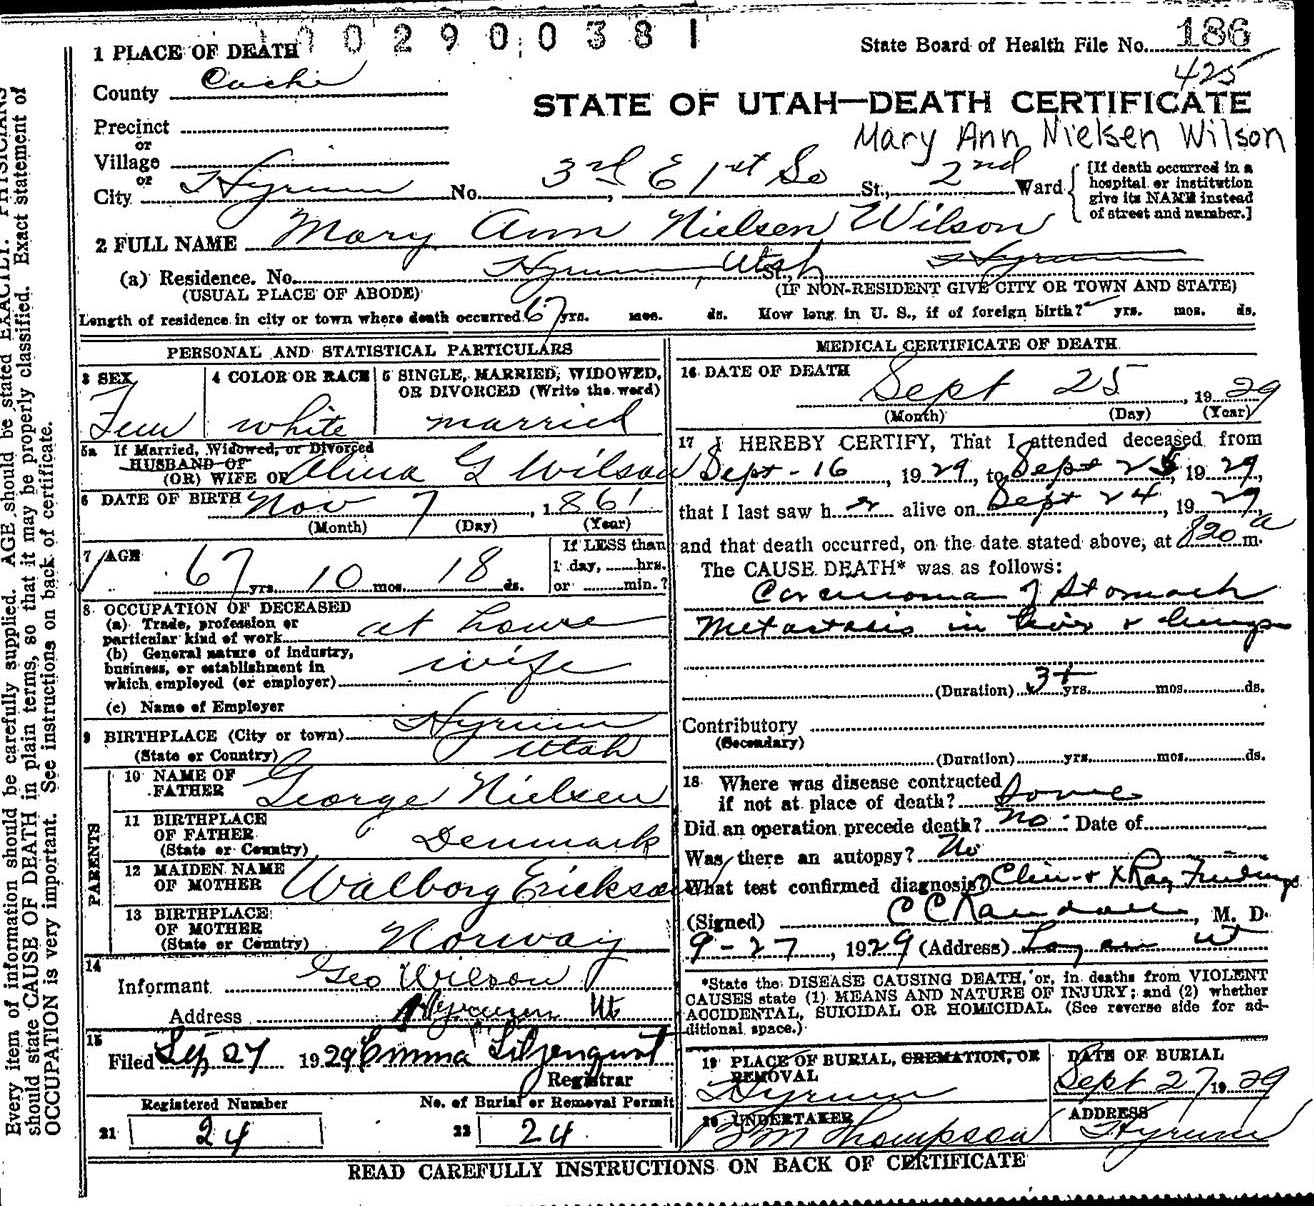 1002900381
State Board of Health File No. 186
425
1 PLACE OF DEATH
County Cache
STATE OF UTAH—DEATH CERTIFICATE
Mary Ann Nielsen Wilson
Precinct
or
Village
or
City Hyrum No. 3rd E 1st So St., 2nd Ward
[If death occurred in a
hospital or institution
give its NAME instead
of street and number.]
2 FULL NAME Mary Ann Nielsen Wilson
(a) Residence. No. Hyrum, Utah St., Hyrum
(USUAL PLACE OF ABODE) (IF NON-RESIDENT GIVE CITY OR TOWN AND STATE)
Length of residence in city or town where death occurred 67 yrs. mos. ds. How long in U. S., if of foreign birth? yrs. mos. ds.
PERSONAL AND STATISTICAL PARTICULARS
3 SEX
Fem
4 COLOR OR RACE
white
5 SINGLE, MARRIED, WIDOWED,
OR DIVORCED (Write the word)
married
5a If Married, Widowed, or Divorced
HUSBAND OF
(OR) WIFE OF Alma G Wilson
6 DATE OF BIRTH Nov 7, 1861
(Month) (Day) (Year)
7 AGE
67 yrs. 10 mos. 18 ds.
If LESS than
1 day, hrs.
or min.?
8 OCCUPATION OF DECEASED
(a) Trade, profession or
particular kind of work at house
(b) General nature of industry,
business, or establishment in
which employed (or employer) wife
(c) Name of Employer
9 BIRTHPLACE (City or town) Hyrum
(State or Country) Utah
PARENTS
10 NAME OF
FATHER George Nielsen
11 BIRTHPLACE
OF FATHER
(State or Country) Denmark
12 MAIDEN NAME
OF MOTHER Walborg Erickson
13 BIRTHPLACE
OF MOTHER
(State or Country) Norway
14
Informant Geo Wilson
Address Hyrum Ut
15
Filed Sep 27 1929 Emma Liljenquist
Registrar
Registered Number
21 24
No. of Burial or Removal Permit
22 24
MEDICAL CERTIFICATE OF DEATH
16 DATE OF DEATH
Sept 25, 1929
(Month) (Day) (Year)
17 I HEREBY CERTIFY, That I attended deceased from
Sept - 16, 1929, to Sept 25, 1929,
that I last saw her alive on Sept 24, 1929
and that death occurred, on the date stated above, at 820 a m.
The CAUSE DEATH* was as follows:
Carcinoma of Stomach
Metastasis in liver & lungs
(Duration) 3+ yrs. mos. ds.
Contributory
(Secondary)
(Duration) yrs. mos. ds.
18 Where was disease contracted
if not at place of death?
Did an operation precede death? No. Date of
Was there an autopsy? No
What test confirmed diagnosis? Clin & X Ray Findings
(Signed) C C Randall, M. D.
9-27, 1929 (Address) Logan Ut
*State the DISEASE CAUSING DEATH, or, in deaths from VIOLENT
CAUSES state (1) MEANS AND NATURE OF INJURY; and (2) whether
ACCIDENTAL, SUICIDAL OR HOMICIDAL. (See reverse side for ad-
ditional space.)
19 PLACE OF BURIAL, CREMATION, OR
REMOVAL
Hyrum
DATE OF BURIAL
Sept 27 1929
20 UNDERTAKER
B M Thompson
ADDRESS
Hyrum
READ CAREFULLY INSTRUCTIONS ON BACK OF CERTIFICATE
Every item of information should be carefully supplied. AGE should be stated EXACTLY. PHYSICIANS
should state CAUSE OF DEATH in plain terms, so that it may be properly classified. Exact statement of
OCCUPATION is very important. See instructions on back of certificate.